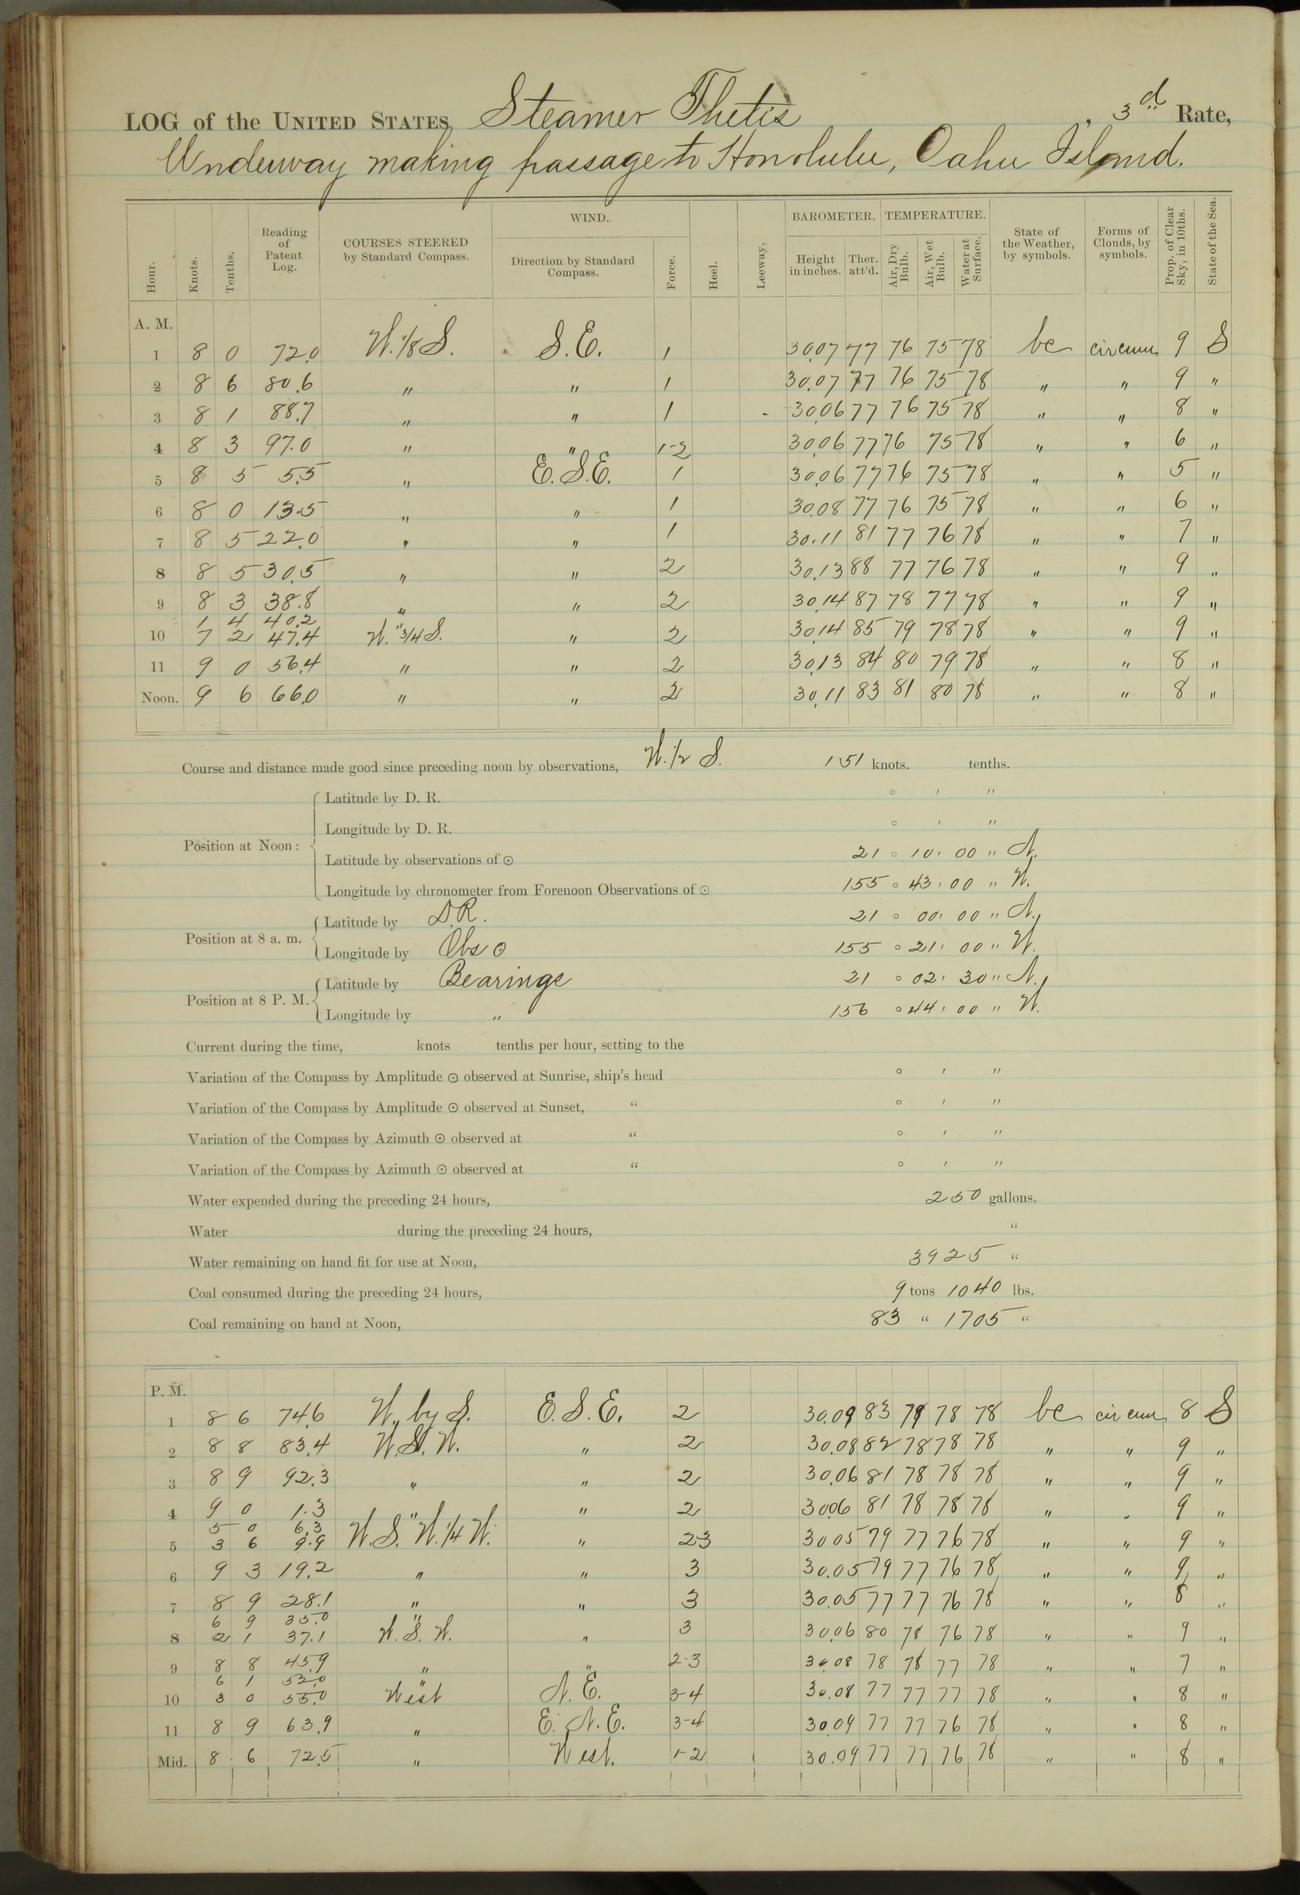 LOG of the UNITED STATES Steamer Thetis, 3d Rate,
Underway making passage to Honolulu, Oahu Island.
Hour. Knots. Tenths. Reading of Patent Log. COURSES STEERED by Standard Compass. WIND. Direction by Standard Compass. Force. Heel. Leeway. BAROMETER. Height in inches. Ther. att'd. TEMPERATURE. Air, Dry Bulb. Air, Wet Bulb. Water at Surface. State of the Weather, by symbols. Forms of Clouds, by symbols. Prop. of Clear Sky, in 10ths. State of the Sea.
A. M.
1 8 0 72.0 W. 1/8 S. S.E. 1 30.07 77 76 75 78 bc cir cum 9 S
2 8 6 80.6 " " 1 30.07 77 76 75 78 " " 9 "
3 8 1 88.7 " " 1 30.06 77 76 75 78 " " 8 "
4 8 3 97.0 " " 1-2 30.06 77 76 75 78 " " 6 "
5 8 5 5.5 " E.S.E. 1 30.06 77 76 75 78 " " 5 "
6 8 0 13.5 " " 1 30.08 77 76 75 78 " " 6 "
7 8 5 22.0 " " 1 30.11 81 77 76 78 " " 7 "
8 8 5 30.5 " " 2 30.13 88 77 76 78 " " 9 "
9 8 3 38.8 " " 2 30.14 87 78 77 78 " " 9 "
1 4 40.2 "
10 7 2 47.4 W. 3/4 S. " 2 30.14 85 79 78 78 " " 9 "
11 9 0 56.4 " " 2 30.13 84 80 79 78 " " 8 "
Noon. 9 6 66.0 " " 2 30.11 83 81 80 78 " " 8 "
Course and distance made good since preceding noon by observations, W. 1/2 S. 151 knots. tenths.
Position at Noon:
Latitude by D. R. ° ' "
Longitude by D. R. ° ' "
Latitude by observations of ☉ 21 ° 10 ' 00 " N.
Longitude by chronometer from Forenoon Observations of ☉ 155 ° 43 ' 00 " W.
Position at 8 a. m.
Latitude by D.R. 21 ° 00 ' 00 " N.
Longitude by Obs ☉ 155 ° 21 ' 00 " W.
Position at 8 P. M.
Latitude by Bearings 21 ° 02 ' 30 " N.
Longitude by " 156 ° 44 ' 00 " W.
Current during the time, knots tenths per hour, setting to the
Variation of the Compass by Amplitude ☉ observed at Sunrise, ship's head ° ' "
Variation of the Compass by Amplitude ☉ observed at Sunset, " ° ' "
Variation of the Compass by Azimuth ☉ observed at " ° ' "
Variation of the Compass by Azimuth ☉ observed at " ° ' "
Water expended during the preceding 24 hours, 250 gallons.
Water during the preceding 24 hours, "
Water remaining on hand fit for use at Noon, 3925 "
Coal consumed during the preceding 24 hours, 9 tons 1040 lbs.
Coal remaining on hand at Noon, 83 " 1705 "
P. M.
1 8 6 74.6 W. by S. E.S.E. 2 30.09 83 79 78 78 bc cir cum 8 S
2 8 8 83.4 W.S.W. " 2 30.08 82 78 78 78 " " 9 "
3 8 9 92.3 " " 2 30.06 81 78 78 78 " " 9 "
4 9 0 1.3 " " 2 30.06 81 78 78 78 " " 9 "
5 0 6.3
5 3 6 9.9 W.S.W. 1/4 W. " 2-3 30.05 79 77 76 78 " " 9 "
6 9 3 19.2 " " 3 30.05 79 77 76 78 " " 9 "
7 8 9 28.1 " " 3 30.05 77 77 76 78 " " 8 "
6 9 35.0 "
8 2 1 37.1 W.S.W. " 3 30.06 80 78 76 78 " " 9 "
9 8 8 45.9 " " 2-3 30.08 78 78 77 78 " " 7 "
6 1 52.0 "
10 3 0 55.0 West N.E. 3-4 30.08 77 77 77 78 " " 8 "
11 8 9 63.9 " E.N.E. 3-4 30.09 77 77 76 78 " " 8 "
Mid. 8 6 72.5 " West. 1-2 30.09 77 77 76 78 " " 8 "